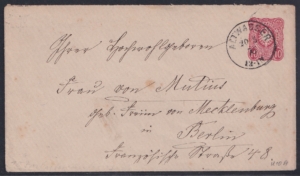 Ihrer Hochwohlgeboren
Frau von Mutius
geb. Freiin von Mecklenburg
in
Berlin
Französische Straße 48